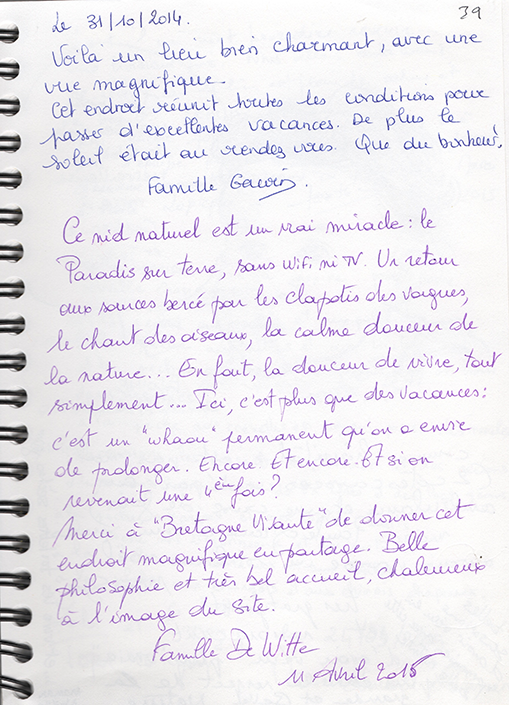 39
Le 31/10/2014.
Voilà un lieu bien charmant, avec une
vue magnifique.
Cet endroit réunit toutes les conditions pour
passer d'excellentes vacances. De plus le
soleil était au rendez vous. Que du bonheur!
Famille
Ce nid naturel est un vrai miracle : le
Paradis sur terre, sans wifi ni TV. Un retour
aux sources bercé par les clapotis des vagues,
le chant des oiseaux, la calme douceur de
la nature... En fait, la douceur de vivre, tout
simplement... Ici, c'est plus que des vacances :
c'est un "whaou" permanent qu'on a envie
de prolonger. Encore. Et encore. Et si on
revenait une 4èm fois ?
Merci à "Bretagne Vivante" de donner cet
endroit magnifique en partage. Belle
philosophie et très bel accueil, chaleureux
à l'image du site.
Famille De Witte
11 Avril 2015